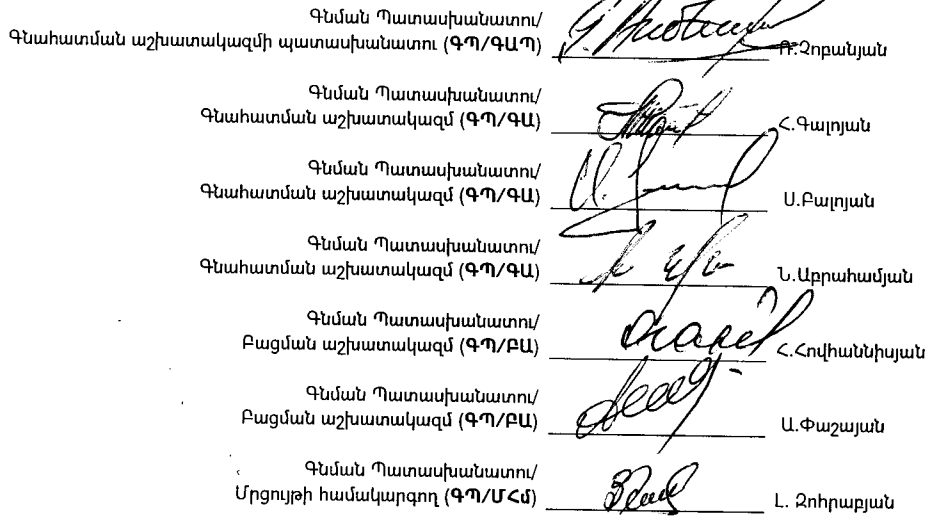 Գնման Պատասխանատու/
Գնահատման աշխատակազմի պատասխանատու (ԳՊ/ԳԱՊ) Չոբանյան
Գնման Պատասխանատու/
Գնահատման աշխատակազմ (ԳՊ/ԳԱ) Հ.Գալոյան
Գնման Պատասխանատու/
Գնահատման աշխատակազմ (ԳՊ/ԳԱ) Ս.Բալոյան
Գնման Պատասխանատու/
Գնահատման աշխատակազմ (ԳՊ/ԳԱ) Ն.Աբրահամյան
Գնման Պատասխանատու/
Բացման աշխատակազմ (ԳՊ/ԲԱ) Հ.Հովհաննիսյան
Գնման Պատասխանատու/
Բացման աշխատակազմ (ԳՊ/ԲԱ) Ա.Փաշայան
Գնման Պատասխանատու/
Մրցույթի համակարգող (ԳՊ/ՄՀմ) Լ. Զոհրաբյան